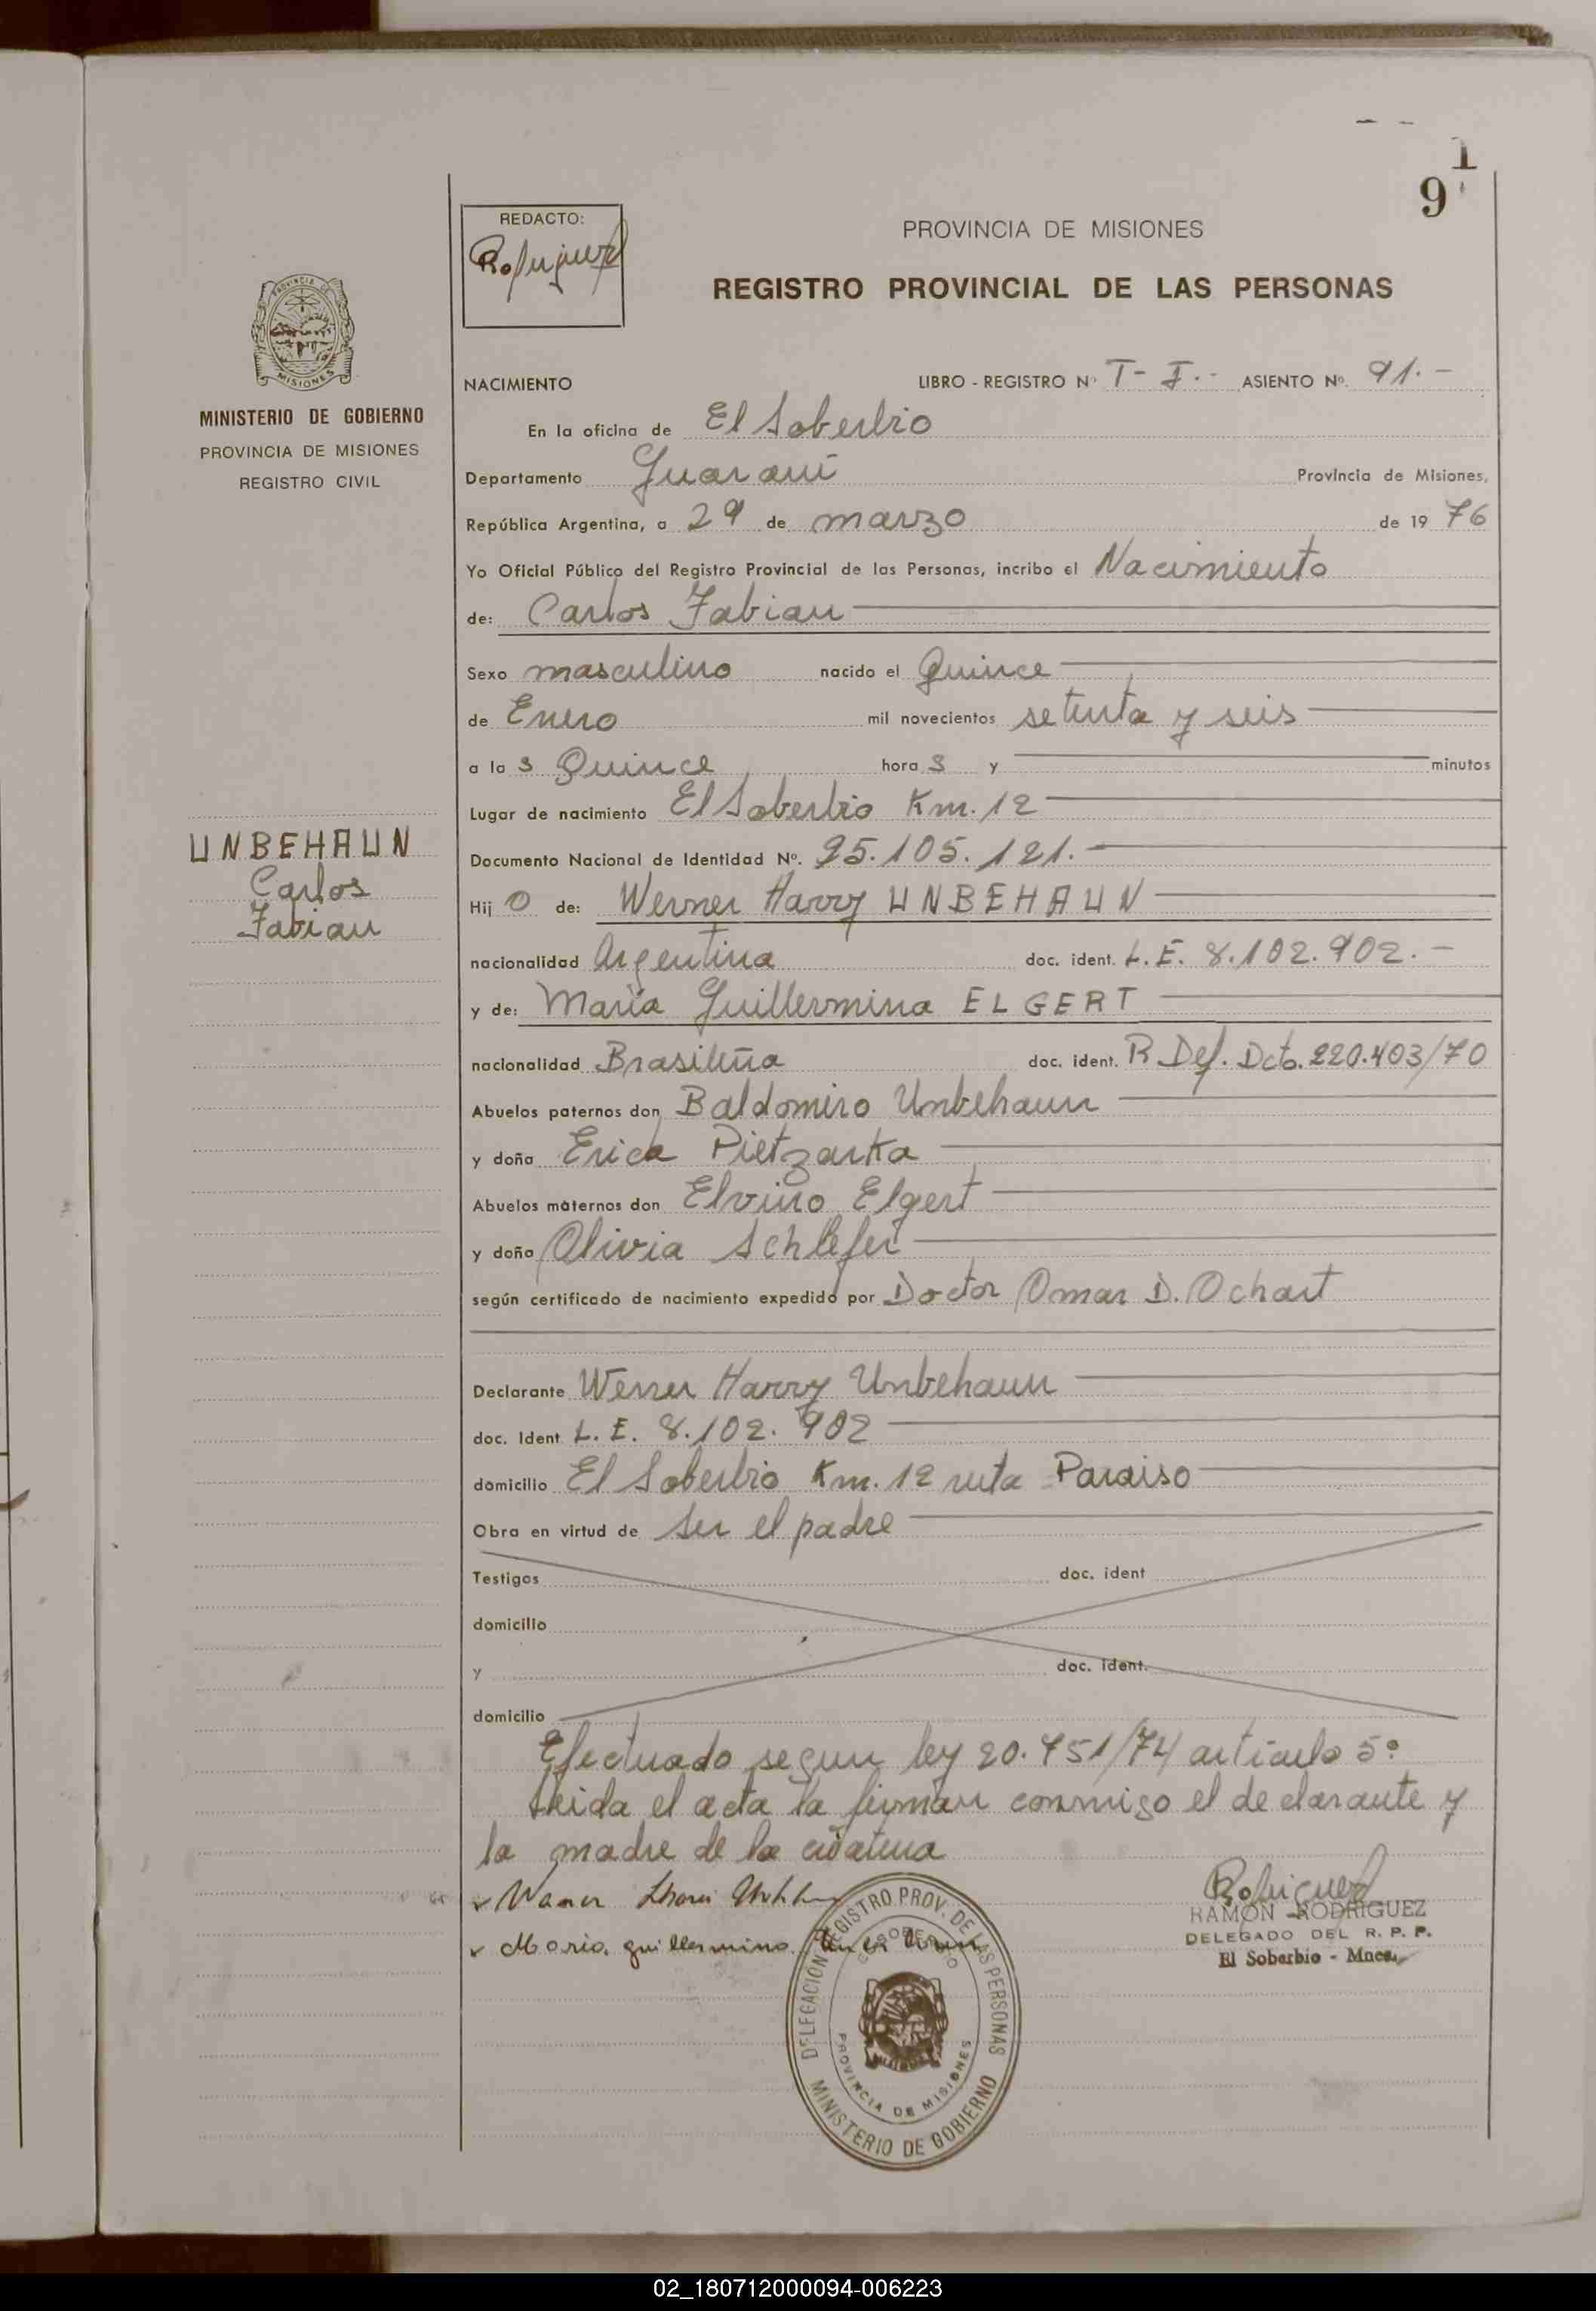 1
91
REDACTO:
Rodriguez
PROVINCIA DE MISIONES
REGISTRO PROVINCIAL DE LAS PERSONAS
MINISTERIO DE GOBIERNO
PROVINCIA DE MISIONES
REGISTRO CIVIL
NACIMIENTO LIBRO - REGISTRO Nº T- I.- ASIENTO Nº. 91.-
En la oficina de El Soberbio
Departamento Guaraní Provincia de Misiones,
República Argentina, a 29 de marzo de 19 76
Yo Oficial Público del Registro Provincial de las Personas, incribo el Nacimiento
de: Carlos Fabian
Sexo masculino nacido el Quince
de Enero mil novecientos setenta y seis
a la s Quince hora s y minutos
Lugar de nacimiento El Soberbio Km. 12
UNBEHAUN
Carlos
Fabian
Documento Nacional de Identidad Nº. 25.105.121.
Hij o de: Werner Harry UNBEHAUN
nacionalidad Argentina doc. ident. L.E. 8.102.902.-
y de: María Guillermina ELGERT
nacionalidad Brasileña doc. ident. R Def. Dcto. 220.403/70
Abuelos paternos don Baldomiro Unbehaun
y doña Erica Pietzarka
Abuelos maternos don Elvino Elgert
y doña Olivia Schlefer
según certificado de nacimiento expedido por Doctor Omar D. Ochart
Declarante Werner Harry Unbehaun
doc. Ident L.E. 8.102.902
domicilio El Soberbio Km. 12 ruta Paraiso
Obra en virtud de ser el padre
Testigos doc. ident
domicilio
y doc. ident.
domicilio
Efectuado segun ley 20.751/74 artículo 5º
leida el acta la firman conmigo el declarante y
la madre de la criatura
Maria guillermina
Rodriguez
RAMON RODRIGUEZ
DELEGADO DEL R. P. P.
El Soberbio - Mnes.
DELEGACIÓN REGISTRO PROV. DE LAS PERSONAS
EL SOBERBIO
PROVINCIA DE MISIONES
MINISTERIO DE GOBIERNO
02_180712000094-006223